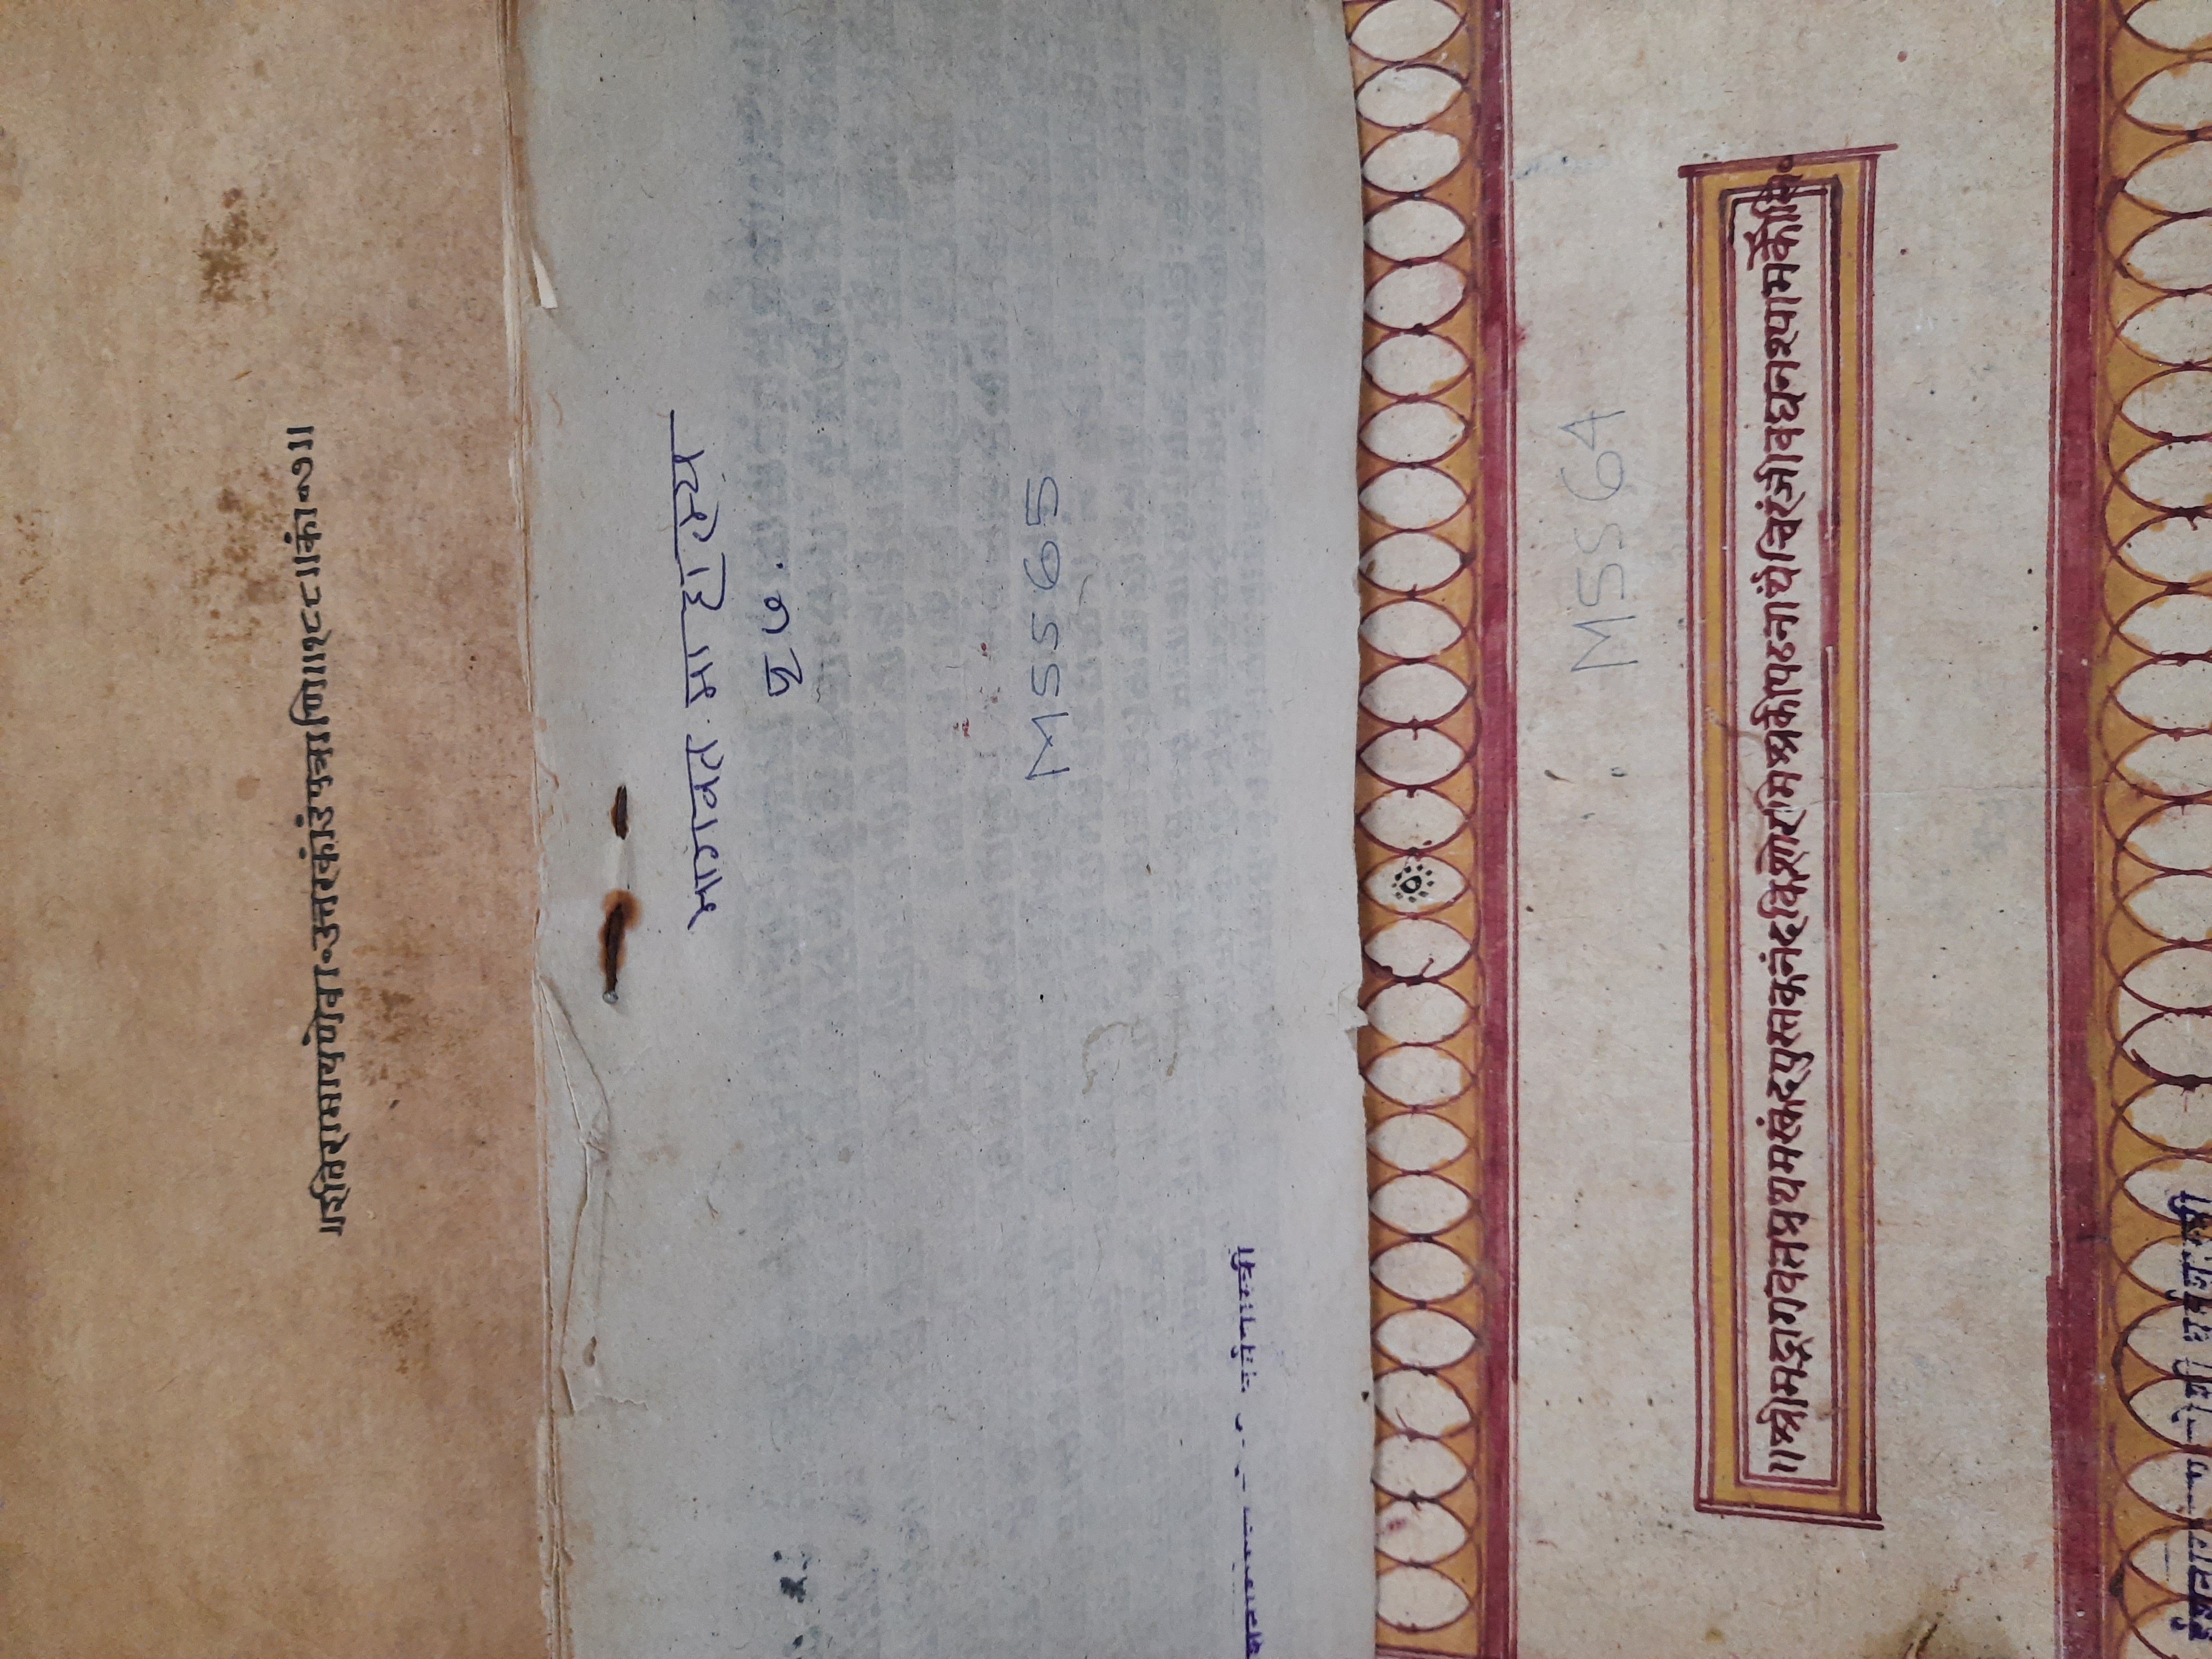 ॥इतिरामायणेवा॰उत्तरकांडंपत्राणि॥१८८॥कां॰७॥
भागवत माहात्म्य
५७.
MSS 65
MSS 64
॥श्रीमद्भागवतप्रथमस्कंदपुस्तकनंदकिशोरमिश्रकीपठनार्थंचिरंजीवघनश्यामकौ